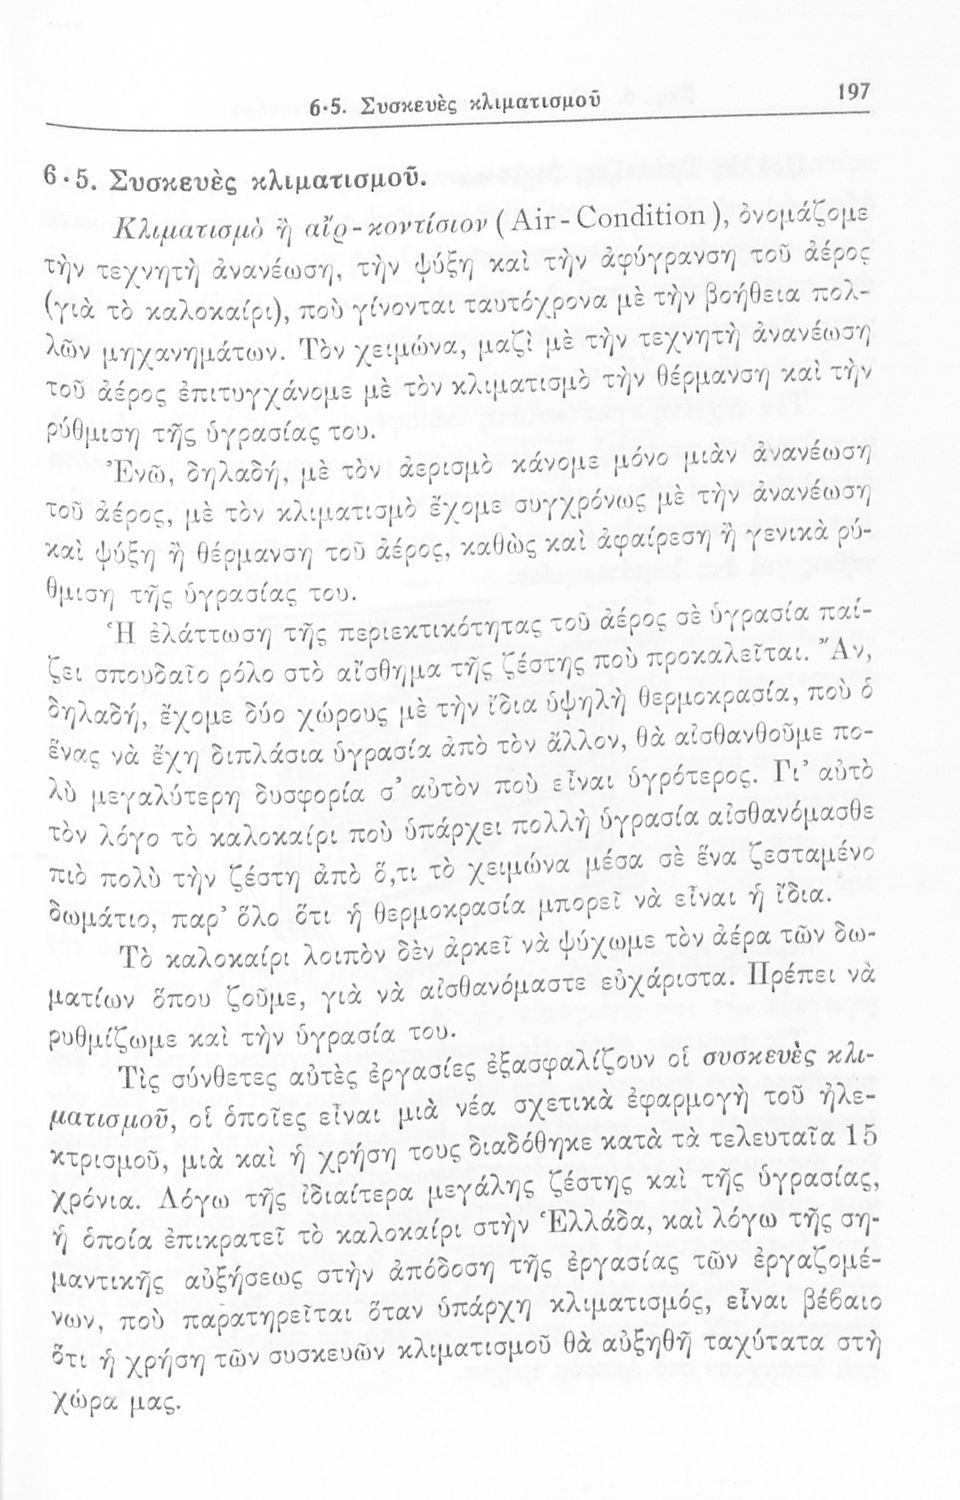 6·5. Συσκευὲς κλιματισμοῦ 197
6·5. Συσκευὲς κλιματισμοῦ.
Κλιματισμὸ ἢ αἲρ-κοντίσιον (Air-Condition), ὀνομάζομε
τὴν τεχνητὴ ἀνανέωση, τὴν ψύξη καὶ τὴν ἀφύγρανση τοῦ ἀέρος
(γιὰ τὸ καλοκαίρι), ποὺ γίνονται ταυτόχρονα μὲ τὴν βοήθεια πολ-
λῶν μηχανημάτων. Τὸν χειμώνα, μαζὶ μὲ τὴν τεχνητὴ ἀνανέωση
τοῦ ἀέρος ἐπιτυγχάνομε μὲ τὸν κλιματισμὸ τὴν θέρμανση καὶ τὴν
ρύθμιση τῆς ὑγρασίας του.
Ἐνῶ, δηλαδή, μὲ τὸν ἀερισμὸ κάνομε μόνο μιὰν ἀνανέωση
τοῦ ἀέρος, μὲ τὸν κλιματισμὸ ἔχομε συγχρόνως μὲ τὴν ἀνανέωση
καὶ ψύξη ἢ θέρμανση τοῦ ἀέρος, καθὼς καὶ ἀφαίρεση ἢ γενικὰ ρύ-
θμιση τῆς ὑγρασίας του.
Ἡ ἐλάττωση τῆς περιεκτικότητας τοῦ ἀέρος σὲ ὑγρασία παί-
ζει σπουδαῖο ρόλο στὸ αἴσθημα τῆς ζέστης ποὺ προκαλεῖται. Ἂν,
δηλαδή, ἔχομε δύο χώρους μὲ τὴν ἴδια ὑψηλὴ θερμοκρασία, ποὺ ὁ
ἕνας νὰ ἔχη διπλάσια ὑγρασία ἀπὸ τὸν ἄλλον, θὰ αἰσθανθοῦμε πο-
λὺ μεγαλύτερη δυσφορία σ’ αὐτὸν ποὺ εἶναι ὑγρότερος. Γι’ αὐτὸ
τὸν λόγο τὸ καλοκαίρι ποὺ ὑπάρχει πολλὴ ὑγρασία αἰσθανόμασθε
πιὸ πολὺ τὴν ζέστη ἀπὸ ὅ,τι τὸ χειμώνα μέσα σὲ ἕνα ζεσταμένο
δωμάτιο, παρ’ ὅλο ὅτι ἡ θερμοκρασία μπορεῖ νὰ εἶναι ἡ ἴδια.
Τὸ καλοκαίρι λοιπὸν δὲν ἀρκεῖ νὰ ψύχωμε τὸν ἀέρα τῶν δω-
ματίων ὅπου ζοῦμε, γιὰ νὰ αἰσθανόμαστε εὐχάριστα. Πρέπει νὰ
ρυθμίζωμε καὶ τὴν ὑγρασία του.
Τὶς σύνθετες αὐτὲς ἐργασίες ἐξασφαλίζουν οἱ συσκευὲς κλι-
ματισμοῦ, οἱ ὁποῖες εἶναι μιὰ νέα σχετικὰ ἐφαρμογὴ τοῦ ἠλε-
κτρισμοῦ, μιὰ καὶ ἡ χρήση τους διαδόθηκε κατὰ τὰ τελευταῖα 15
χρόνια. Λόγω τῆς ἰδιαίτερα μεγάλης ζέστης καὶ τῆς ὑγρασίας,
ἡ ὁποία ἐπικρατεῖ τὸ καλοκαίρι στὴν Ἑλλάδα, καὶ λόγω τῆς ση-
μαντικῆς αὐξήσεως στὴν ἀπόδοση τῆς ἐργασίας τῶν ἐργαζομέ-
νων, ποὺ παρατηρεῖται ὅταν ὑπάρχη κλιματισμός, εἶναι βέβαιο
ὅτι ἡ χρήση τῶν συσκευῶν κλιματισμοῦ θὰ αὐξηθῆ ταχύτατα στὴ
χώρα μας.